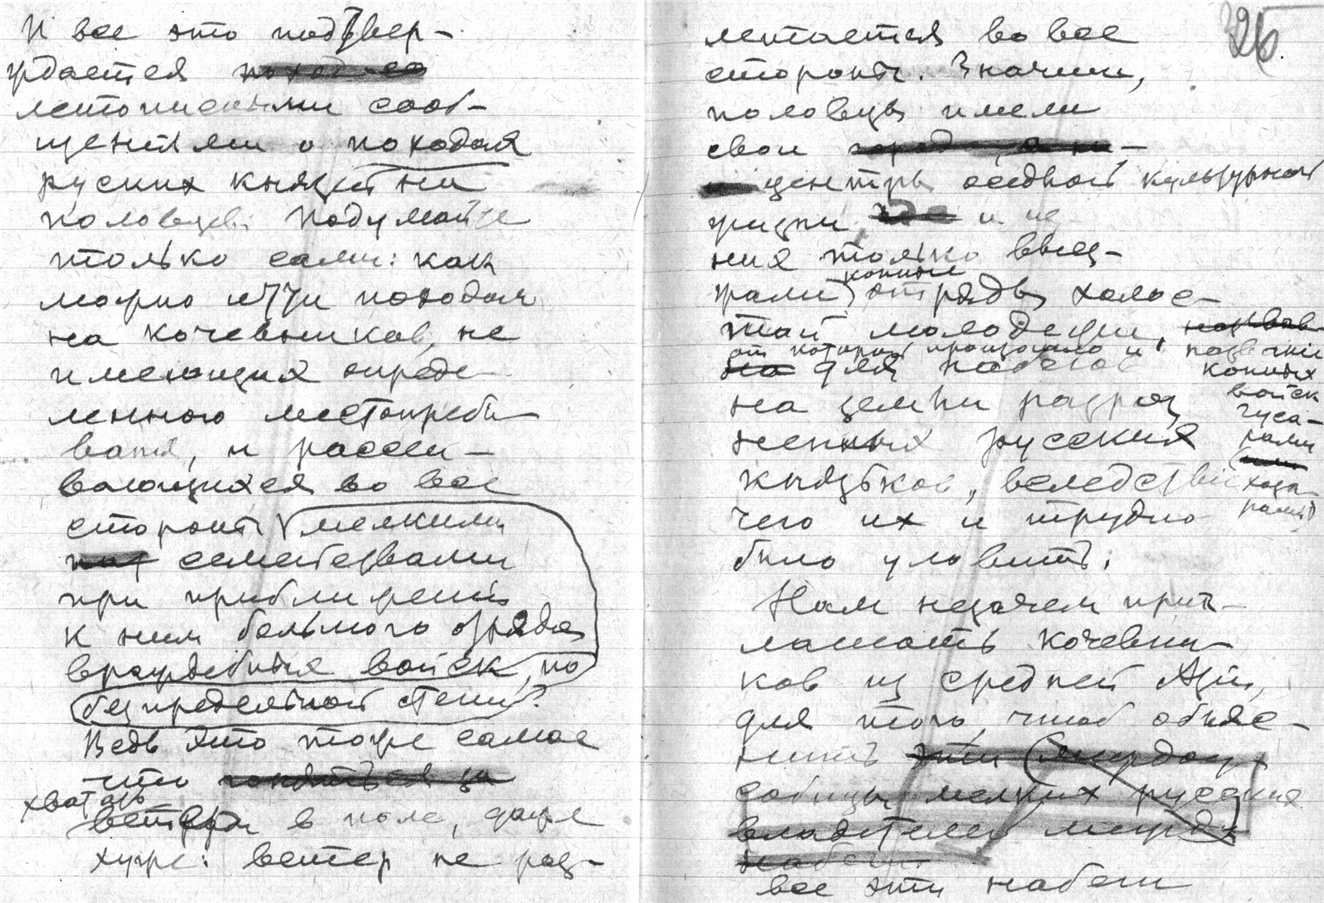 И все это подтвер-
ждается
летописными сооб-
щениями о походах
руских князей на
половцев. Подумайте
только сами: как
можно итти походом
на кочевников, не
имеющих опреде-
ленного местопребы-
вания, и рассеи-
вающихся во все
стороны мелкими
семействами
при приближении
к ним большого отряда
враждебных войск, по
беспредельной степи?
Ведь это тоже самое
что
хватать
ветер в поле, даже
хуже: ветер не раз-
326
летается во все
стороны. Значит,
половцы имели
свои
центры оседлой культурной
жизни и
них только выез-
жали конные отряды холос-
той молодежи,
от которой произошло и название
конных
войск
гуса-
рами
хаза-
рами
для набегов
на земли разроз-
ненных русских
князьков, вследствие
чего их и трудно
было уловить.
Нам незачем приг-
лашать кочевни-
ков из средней Азии,
для того, чтоб объяс-
нить эти
мелких русских
все эти набеги